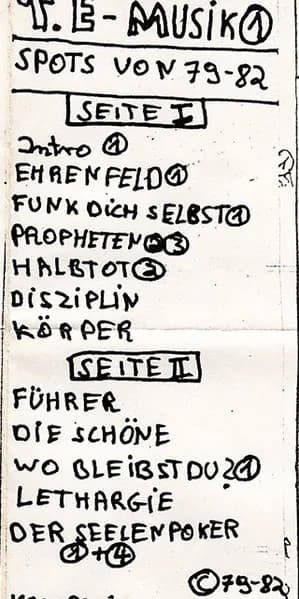 T.E-MUSiK①
SPOTS VON 79-82
SEITE I
Intro ①
EHRENFELD①
FUNK DiCH SELBST①
PROPHETEN②③
HALBTOT②
DiSZiPLiN
KÖRPER
SEITE II
FÜHRER
DiE SCHÖNE
WO BLEiBST DU?①
LETHARGiE
DER SEELENPOKER
①+④
©79-82